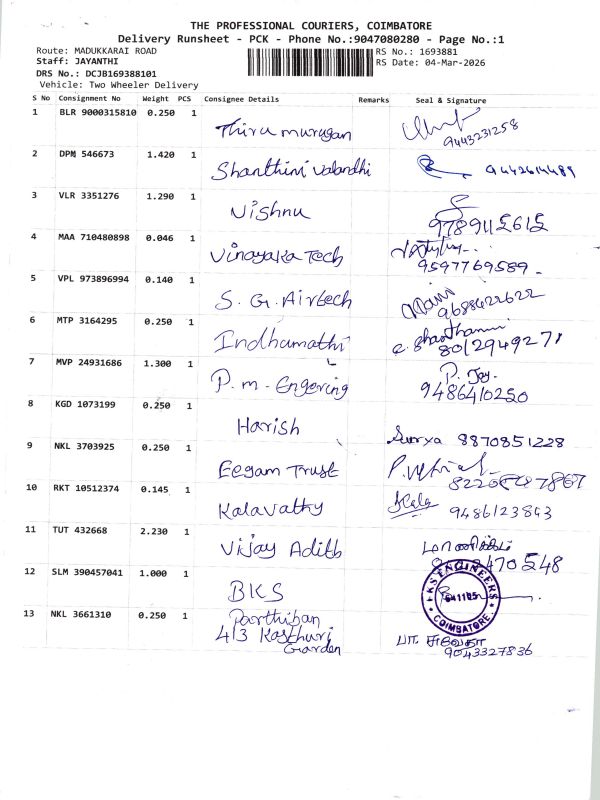 THE PROFESSIONAL COURIERS, COIMBATORE
Delivery Runsheet - PCK - Phone No.:9047080280 - Page No.:1
Route: MADUKKARAI ROAD
Staff: JAYANTHI
DRS No.: DCJB169388101
Vehicle: Two Wheeler Delivery
RS No.: 1693881
RS Date: 04-Mar-2026
S No Consignment No Weight PCS Consignee Details Remarks Seal & Signature
1 BLR 9000315810 0.250 1 Thirumurugan 9443231258
2 DPM 546673 1.420 1 Shanthini Valandhi
3 VLR 3351276 1.290 1 Vishnu
4 MAA 710480898 0.046 1 Vinayaka Tech 9597769589
5 VPL 973896994 0.140 1 S. G. Airtech Mani 9688422622
6 MTP 3164295 0.250 1 Indhumathi 8012949271
7 MVP 24931686 1.300 1 P. m. Engering P. Jay. 9486410250
8 KGD 1073199 0.250 1 Harish Surya 8870851228
9 NKL 3703925 0.250 1 Eegam Trust
10 RKT 10512374 0.145 1 Kalavathy Kala 9486123843
11 TUT 432668 2.230 1 Vijay Adith
12 SLM 390457041 1.000 1 BKS KS ENGINEERS COIMBATORE.
13 NKL 3661310 0.250 1 Parthiban
4/3 Kasthuri
Garden 9043327836